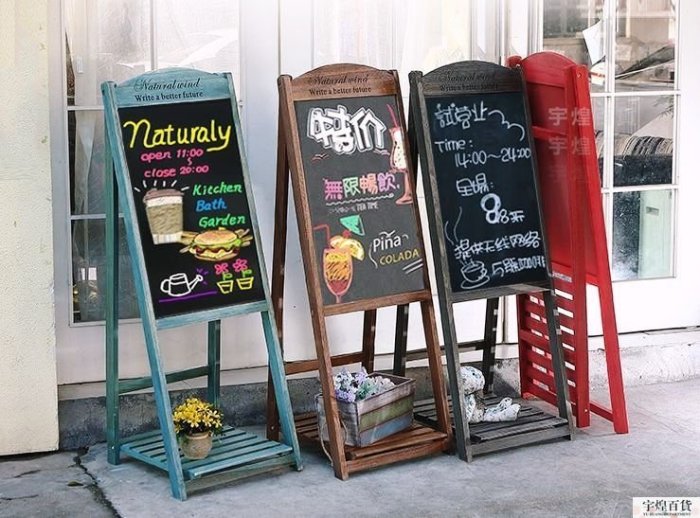 Natural wind
Write a better future
Naturaly
open 11:00
close 20:00
Kitchen
Bath
Garden
Natural wind
Write a better future
特价
無限暢飲
TEA TIME
Piña
COLADA
Natural wind
Write a better future
試营业
Time:
14:00~24:00
全場
8.8折
提供无线网络
宇煌
宇煌百貨